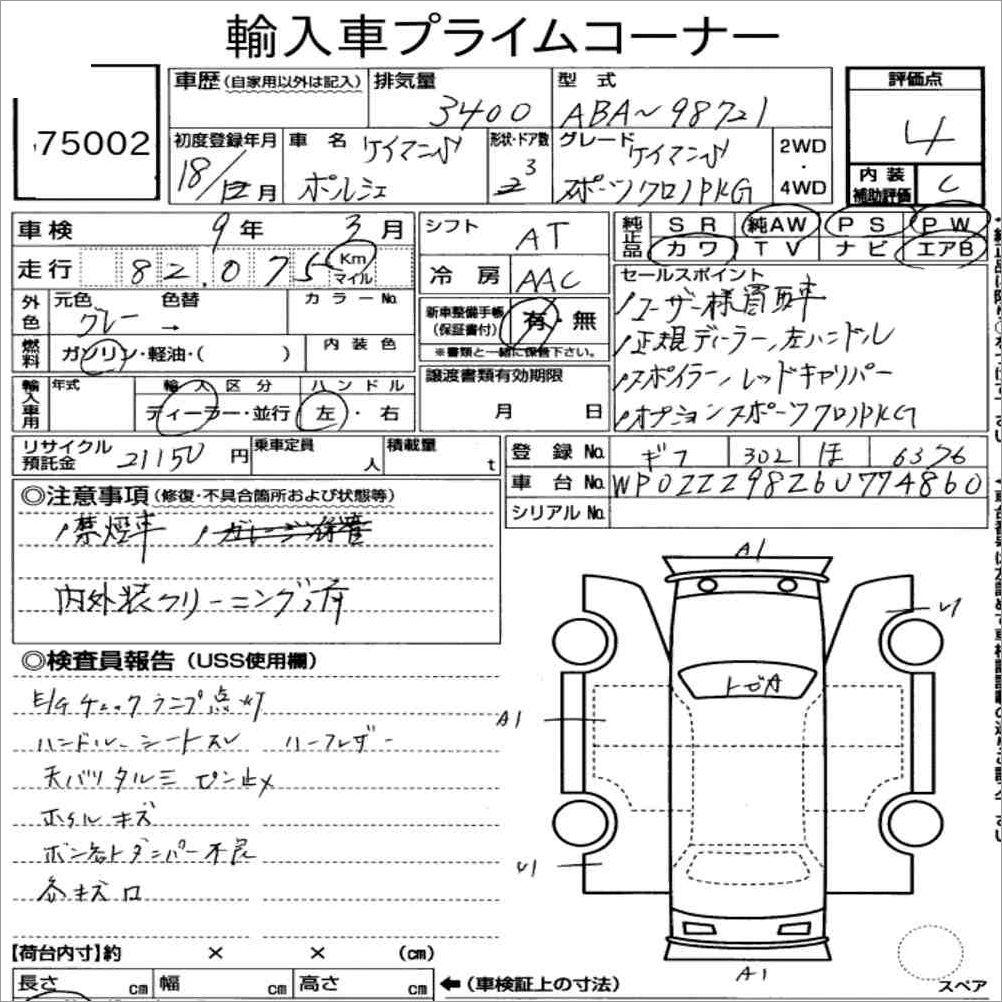 輸入車プライムコーナー
75002
車歴(自家用以外は記入)
排気量
3400
型 式
ABA~98721
評価点
4
初度登録年月
18/12月
車 名
ケイマンS
ポルシェ
形状・ドア数
3
グレード
ケイマンS
スポーツクロノPKG
2WD
・
4WD
内装
補助評価
C
車検 9年 3月
走行 82.075 Km
マイル
シフト AT
冷房 AAC
純正品
SR 純AW PS PW
カワ TV ナビ エアB
外色
元色 色替
グレー →
カラーNo.
燃料
ガソリン・軽油・( )
内装色
新車整備手帳
(保証書付)
有・無
※書類と一緒に保管下さい。
セールスポイント
ユーザー様買取車
正規ディーラー、左ハンドル
スポイラー、レッドキャリパー
オプションスポーツクロノPKG
輸入車用
年式
輸入区分
ディーラー・並行
ハンドル
左・右
譲渡書類有効期限
月 日
リサイクル
預託金
21150円
乗車定員
人
積載量
t
登録No. ギフ 302 ほ 6376
車台No. WP0ZZZ98Z6U774860
シリアルNo.
◎注意事項(修復・不具合箇所および状態等)
禁煙車 ガレージ保管
内外装クリーニング済
◎検査員報告(USS使用欄)
E/Gチェックランプ点灯
ハンドル、シートスレ ハーフレザー
天バリタルミ ピン止メ
ホイルキズ
ボンネットダンパー不良
各キズ口
A1
U1
トビA
A1
U1
A1
スペア
【荷台内寸】約 × × (cm)
長さ cm 幅 cm 高さ cm
←(車検証上の寸法)